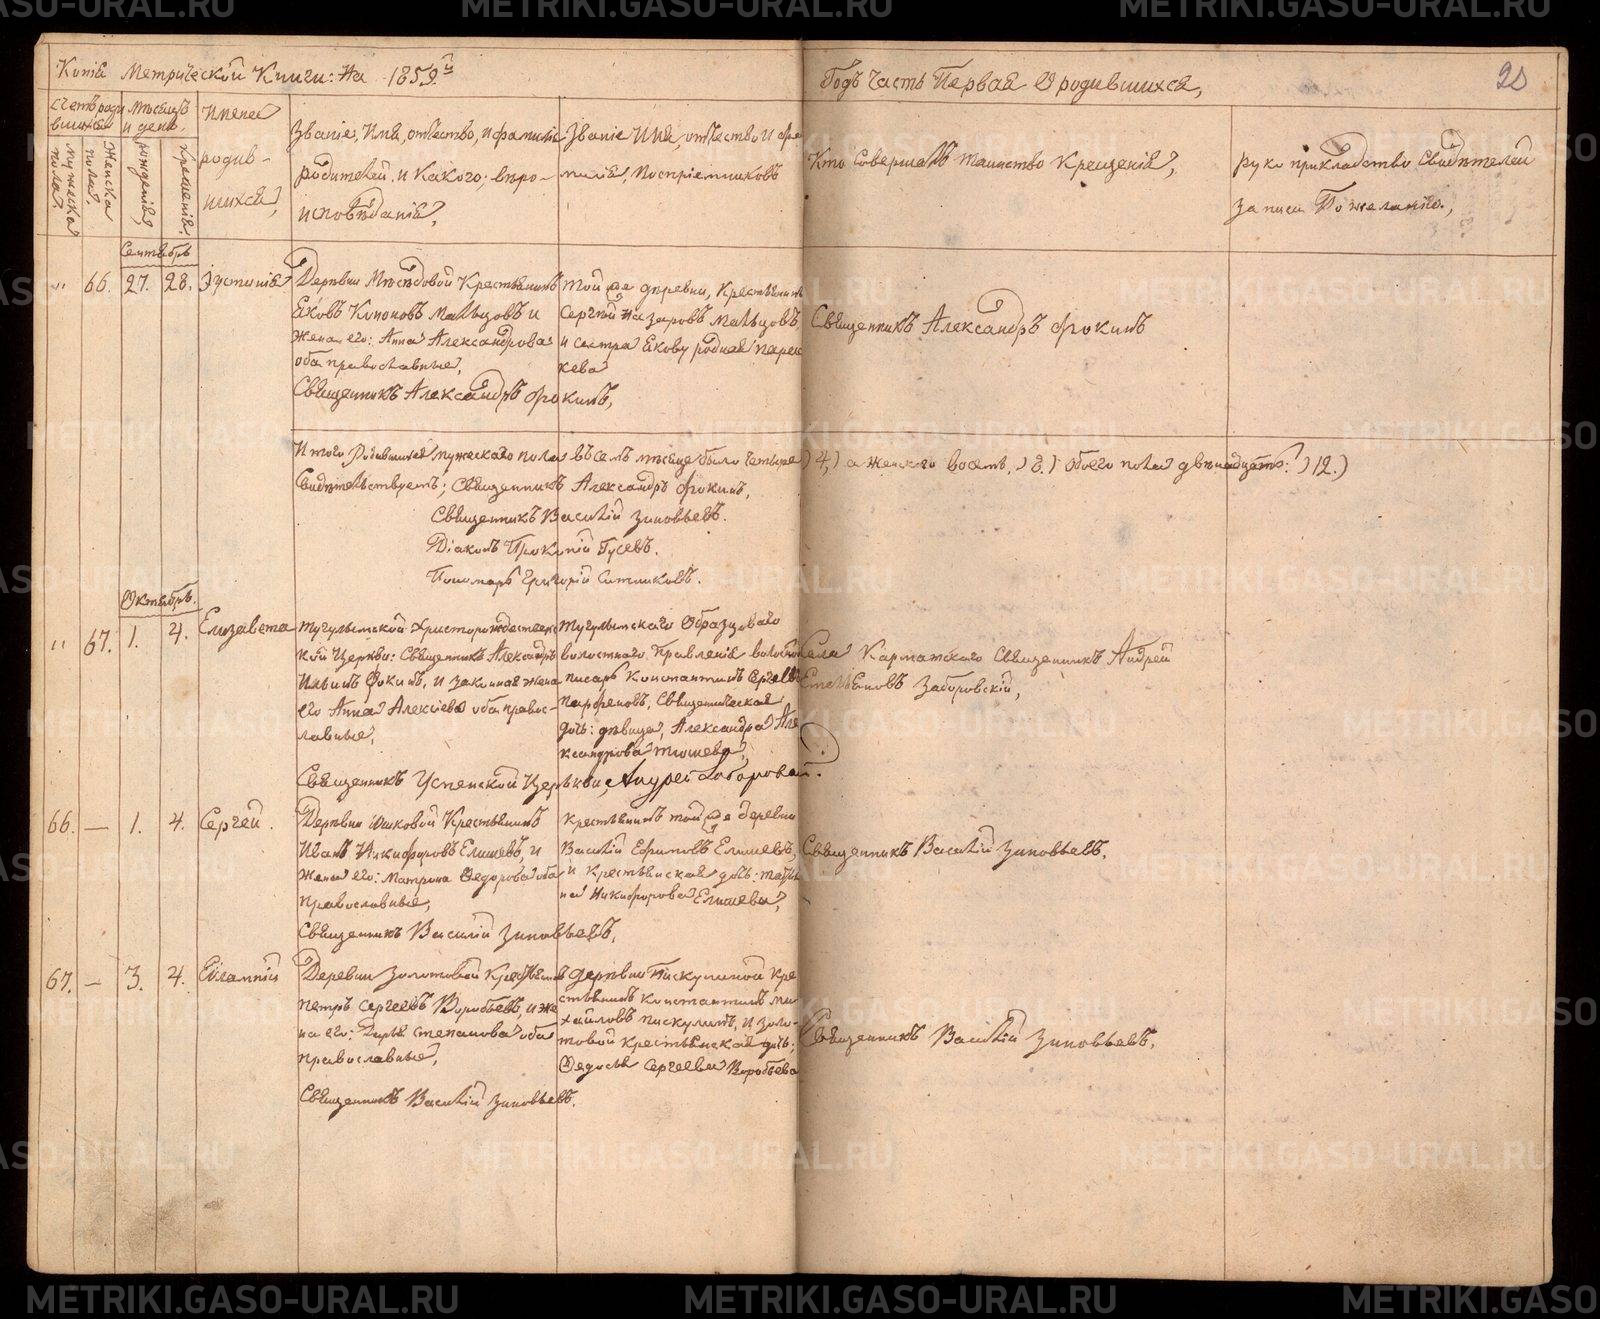 Копія Метрической Книги: На 1859й
Годъ Часть Первая О родившихся,
20
счетъ роди
вшихся
Мѣсяцъ
и день.
мужеска
пола.
женска
пола.
рожденія,
крещенія.
Имена
родив-
шихся,
Званіе, Имя, отчество, и фамилія
родителей, и Какого, вѣро-
исповѣданія,
Званіе Имя, отчество и фа
милія, Воспріемниковъ
Кто Совершалъ таинство Крещенія,
рукоприкладство Свидѣтелей
записи По желанію,
Сентябрь
" 66. 27. 28. Іустинія
Деревни Крестьянинъ
Яковъ Кононовъ Мальцовъ и
Жена его: Анна Александрова
оба православные,
Священникъ Александръ Фокинъ,
той же деревни, Крестьянинъ
Сергѣй Назаровъ Мальцовъ,
и сестра Якову родная Парас
кева
Священникъ Александръ Фокинъ
Итого Родившихся мужескаго пола въ семъ мѣсяце было четыре) 4,) а женского восемь,) 8.) обоего пола двѣнадцать.) 12.)
Свидѣтельствуетъ; Священникъ Александръ Фокинъ,
Священникъ Василій Зиновьевъ.
Діаконъ Прокопій Гусевъ.
Пономарь Григорій Ситниковъ.
Октябрь.
" 67. 1. 4. Елизавета
Тугулымской Христорождественс
кой Церкви: Священникъ Александръ
Ильинъ Фокинъ, и законная жена
его Анна Алексіева оба правос-
лавные,
Тугулымскаго Образцоваго
волостнаго Правленія волостной
писарь Константинъ Сергеевъ
Парфеновъ, Священническая
дочь: дѣвица, Александра Але
ксандрова
Села Карматского Священникъ Андрей
Заборовскій,
Священникъ Успенской Церкви, Андрей Заборовскій.
66. — 1. 4. Сергей.
Деревни Юшковой Крестьянинъ
Иванъ Никифоровъ Елишевъ, и
Жена его: Матрона Ѳедорова оба
Православные,
Священникъ Василій Зиновьевъ,
Крестьянинъ той же деревни
Василій Ефимовъ Елишевъ,
и Крестьянская дочь: Татья
на Никифорова Елишева,
Священникъ Василій Зиновьевъ.
67. — 3. 4. Евлампій
Деревни Золотовой Крестьянинъ
Петръ Сергеевъ Воробьевъ, и же
на его: Дарья Степанова оба
православные,
Священникъ Василій Зиновьевъ.
деревни Пискулиной Кре
стьянинъ Константинъ Ми
хайловъ Пискулинъ, и Золо-
товой Крестьянская дочь;
Ѳедосья Сергеева Воробьева
Священникъ Василій Зиновьевъ.
METRIKI.GASO-URAL.RU